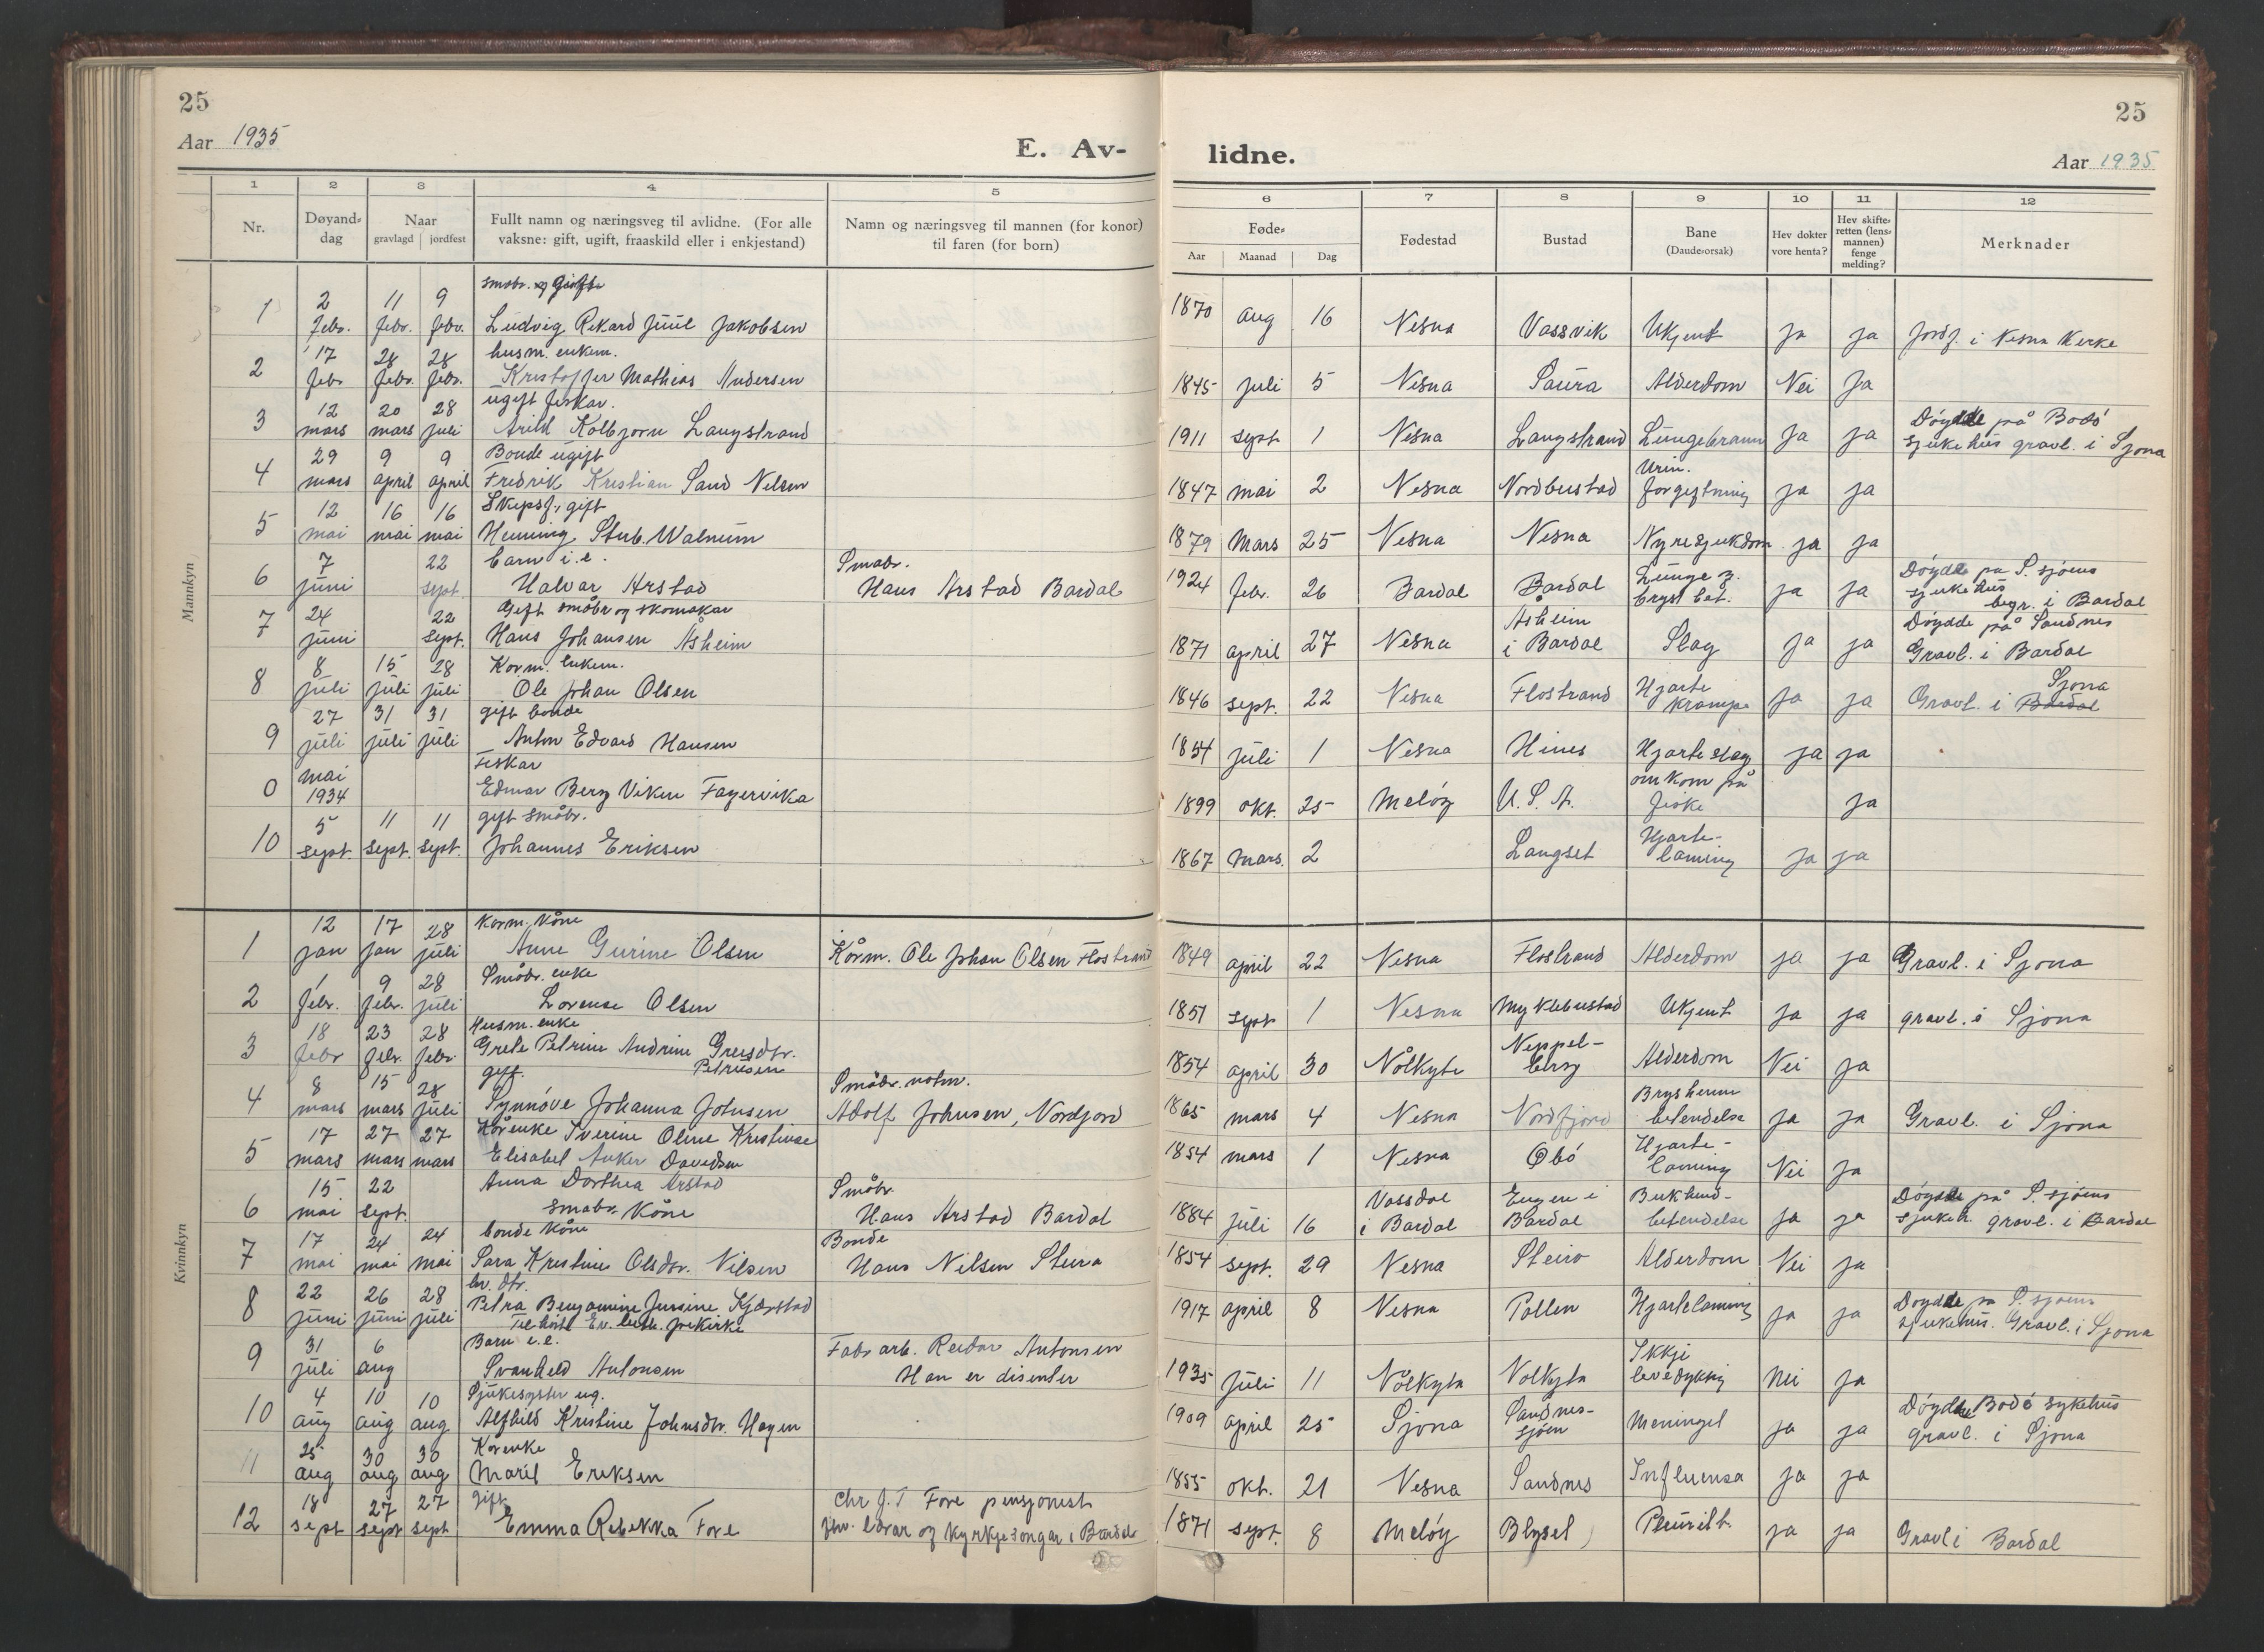 25
Aar 1935
E. Av-
1 2 3 4 5
Nr.
Døyand-
dag
Naar
gravlagd jordfest
Fullt namn og næringsveg til avlidne. (For alle
vaksne: gift, ugift, fraaskild eller i enkjestand)
Namn og næringsveg til mannen (for konor)
til faren (for born)
Mannkyn
smobr. og gift
1 2 febr. 11 febr. 9 febr. Ludvig Rikard Juul Jakobsen
husm. enkem.
2 17 febr 28 febr. 28 febr. Kristoffer Mathias Andersen
ugift fiskar.
3 12 mars 20 mars 28 juli Arild Kolbjorn Langstrand
Bonde ugift
4 29 mars 9 april 9 april Fredrik Kristian Sand Nelsen
Skepsf., gift
5 12 mai 16 mai 16 mai Henning Stub. Walnum
barn i.e. Smabr.
6 7 juni 22 sept. Halvar Arstad Hans Arstad Bardal
Gift småbr og skomakar
7 24 juni 22 sept. Hans Johansen Åsheim
Korm. Enkem.
8 8 juli 15 juli 28 juli Ole Johan Olsen
gift bonde
9 27 juli 31 juli 31 juli Anton Edvard Hansen
Fiskar
0 mai 1934 Edmar Berg Viken Fagervika
gift småbr.
10 5 sept. 11 sept. 11 sept. Johannes Eriksen
Kvinnkyn
Korm. kåne
1 12 jan 17 jan 28 juli Anne Gurine Olsen Kårm. Ole Johan Olsen Flostrand
Småbr. enke
2 1 febr. 9 febr. 28 juli Lorense Olsen
Husm. enke
3 18 febr 23 febr. 28 febr. Grete Petrine Andrine Greisdtr.
Petrusen
gift. Småbr. notm.
4 8 mars 15 mars 28 juli Synnóve Johanna Johnsen Adolf Johnsen, Nordfjord
5 17 mars 27 mars 27 mars Kårenke Iverine Oline Kristinse
Elisabet Anker Davidsen
6 15 mai 22 sept. Anna Dorthea Arstad Småbr.
smabr. Kåne Hans Arstad Bardal
bonde kåne Bonde
7 17 mai 24 mai 24 mai Sara Kristine Olsdtr. Nilsen Hans Nilsen Steira
br. dtr.
8 22 juni 26 juni 28 juli Petra Benjamine Jursine Kjærstad
Tilhøtl Ev. luth. frikirke
Barn e.e.
9 31 juli 6 aug Svanheld Antonsen Fabr arb. Reidar Antonsen
Han er disenter
Sjukesyster ug.
10 4 aug 10 aug 10 aug Alfhild Kristine Johnsdtr. Hagen
Korenke
11 25 aug 30 aug 30 aug Marit Eriksen
gift Chr J. T Fore pensjonist
12 18 sept 27 sept 27 sept Emma Rebekka Fore fhv. lærar og kyrkjesongar i Bardal
25
lidne.
Aar 1935
6 7 8 9 10 11 12
Føde-
Aar Maanad Dag
Fødestad
Bustad
Bane
(Daude-orsak)
Hev dokter
vore henta?
Hev skifte-
retten (lens-
mannen)
fenge
melding?
Merknader
1870 aug 16 Nesna Vassvik Ukjent ja ja Jordf. i Nesna Kerke
1845 juli 5 Nesna Saura Alderdom Nei Ja
1911 sept 1 Nesna Langstrand Lungebrann Ja ja Dóydde på Bodó
sjukehus gravl. i Sjona
1847 mai 2 Nesna Nordbustad Urin.
forgiftning ja ja
1879 Mars 25 Nesna Nesna Nyresjukdom ja ja
1924 febr. 26 Bardal Bardal Lunge og
bryst bet. ja ja Dóydde pa S. sjoens
sjukehus
begr. i Bardal
1871 april 27 Nesna Åsheim
i Bardal Slag ja ja Dóydde på Sandnes
Gravl. i Bardal
1846 sept. 22 Nesna Flostrand Hjarte
krampe Ja ja Gravl. i Bardal Sjona
1854 juli 1 Nesna Hines Hjarteslag ja ja
1899 okt. 25 Melóy U.S.A. omkom på
fiske ja
1867 mars. 2 Langset Hjarte-
laming ja ja
1849 april 22 Nesna Flostrand Alderdom ja ja Gravl. i Sjona
1851 sept 1 Nesna Myklebustad Ukjent ja ja gravl. i Sjona
1854 april 30 Nålkyta Neppel-
berg Alderdom Nei ja
1865 mars 4 Nesna Nordfjord Brysthinne
betendelse ja ja Gravl. i Sjona
1854 mars 1 Nesna Øbó Hjarte-
laming Nei ja
1884 juli 16 Vassdal
i Bardal Engen i
Bardal Bukhind-
betendelse ja ja Dóydde på S. sjóens
sjukeh. gravl. i Bardal
1854 sept. 29 Nesna Steiro Alderdom Nei ja
1917 april 8 Nesna Pollen Hjartelaming ja ja Doydde pa S. sjoens
sjukehus. Gravl. i Sjona
1935 Juli 11 Nålkyta Nolkyta Ikkje
levedyktig Nei ja
1909 april 25 Sjona Sandnes-
sjóen Meningit ja ja Dóydde Bodó sykehus
gravl. i Sjona
1855 okt. 21 Nesna Sandnes Influensa Ja ja
1871 sept. 8 Melóy Blysel Pleuritt. ja ja Gravl i Bardal